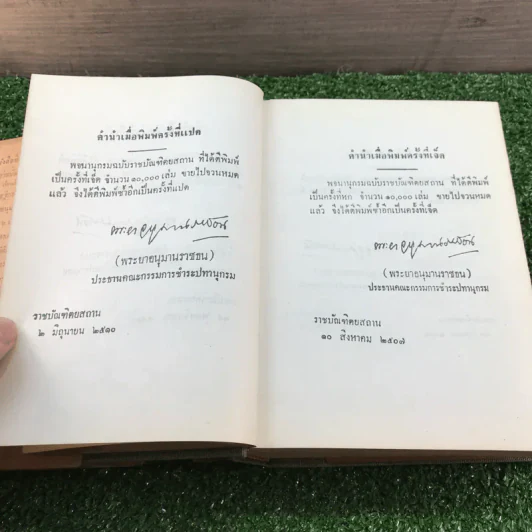 คำนำเมื่อพิมพ์ครั้งที่แปด
พจนานุกรมฉบับราชบัณฑิตยสถาน ที่ได้ตีพิมพ์
เป็นครั้งที่เจ็ด จำนวน ๑๐,๐๐๐ เล่ม ขายไปจวนหมด
แล้ว จึงได้ตีพิมพ์ซ้ำอีกเป็นครั้งที่แปด
(พระยาอนุมานราชธน)
ประธานคณะกรรมการชำระปทานุกรม
ราชบัณฑิตยสถาน
๒ มิถุนายน ๒๕๑๐
คำนำเมื่อพิมพ์ครั้งที่เจ็ด
พจนานุกรมฉบับราชบัณฑิตยสถาน ที่ได้ตีพิมพ์
เป็นครั้งที่หก จำนวน ๑๐,๐๐๐ เล่ม ขายไปจวนหมด
แล้ว จึงได้ตีพิมพ์ซ้ำอีกเป็นครั้งที่เจ็ด
(พระยาอนุมานราชธน)
ประธานคณะกรรมการชำระปทานุกรม
ราชบัณฑิตยสถาน
๑๐ สิงหาคม ๒๕๐๗